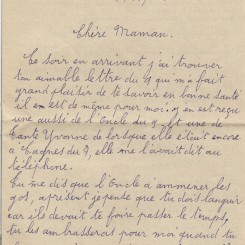 Chère Maman.
Ce soir en arrivant j'ai trouver
ton aimable lettre du 4 qui m'a fait
grand plaisir de te savoir en bonne santé
il en est de même pour moi. j'en est reçu
une aussi de l'Oncle du 9 et une de
tante Yvonne de lorsque elle était encore
a Cagnes du 7, elle me l'avait dit au
téléphone.
Tu me dis que l'Oncle a ammener les
gos, apresent je pense que tu dois languir
car ils devait te faire passer le temps,
tu les ambrasseras pour moi quand tu